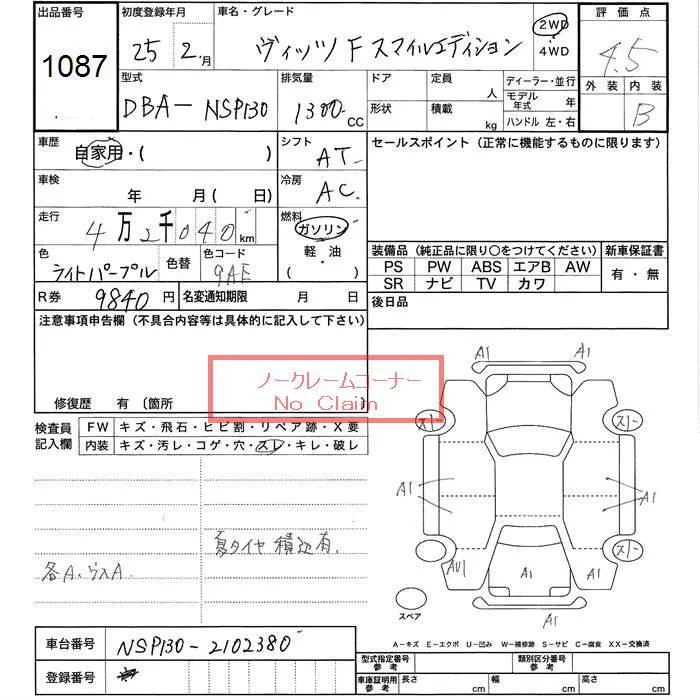 出品番号 初度登録年月 車名・グレード 評価点
1087 25 2月 ヴィッツ F スマイルエディション 2WD 4WD 4.5
型式 排気量 ドア 定員 ディーラー・並行 外装 内装
DBA-NSP130 1300cc 形状 積載 人 kg モデル年式 年 ハンドル 左・右 B
車歴 シフト セールスポイント (正常に機能するものに限ります)
自家用・( ) AT
車検 年 月(日) 冷房 AC
走行 4万2千040km 燃料 ガソリン
色 ライトパープル 色替 色コード 9AE 軽・油 ( )
装備品 (純正品に限り○をつけてください) 新車保証書
PS PW ABS エアB AW 有・無
SR ナビ TV カワ
R券 9840円 名変通知期限 月 日 後日品
注意事項申告欄 (不具合内容等は具体的に記入して下さい)
ノークレームコーナー
No Claim
修復歴 有 (箇所
A1 A1
検査員記入欄 FW キズ・飛石・ヒビ割・リペア跡・X要
内装 キズ・汚レ・コゲ・穴・スレ・キレ・破レ
スリ スリ
A1 A1
夏タイヤ積込有.
各A、ヴスA. スリ
AU1 A1 A1
スペア
A1
A-キズ E-エクボ U-凹み W-補修跡 S-サビ C-腐食 XX-交換済
車台番号 NSP130-2102380
型式指定番号 参考 類別区分番号 参考
登録番号 車庫証明用 参考 長さ cm 幅 cm 高さ cm